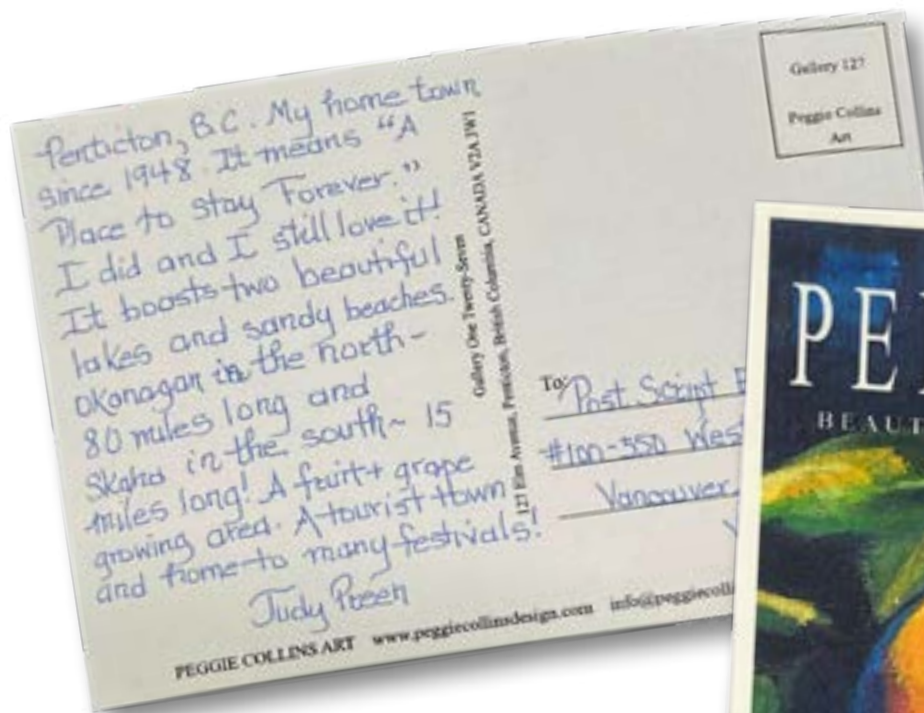 Penticton, B.C. My home town
since 1948. It means "A
Place to stay Forever."
I did and I still love it!
It boasts two beautiful
lakes and sandy beaches.
Okanagan in the north-
80 miles long and
Skaha in the south~ 15
miles long! A fruit + grape
growing area. A tourist town
and home to many festivals!
Judy
Gallery One Twenty-Seven
121 Elm Avenue, Penticton, British Columbia, CANADA V2A 3W1
Gallery 127
Peggie Collins
Art
To: Post Script
#100-350 West
Vancouver,
PEGGIE COLLINS ART www.peggiecollinsdesign.com info@peggiecoll
PE
BEAUT